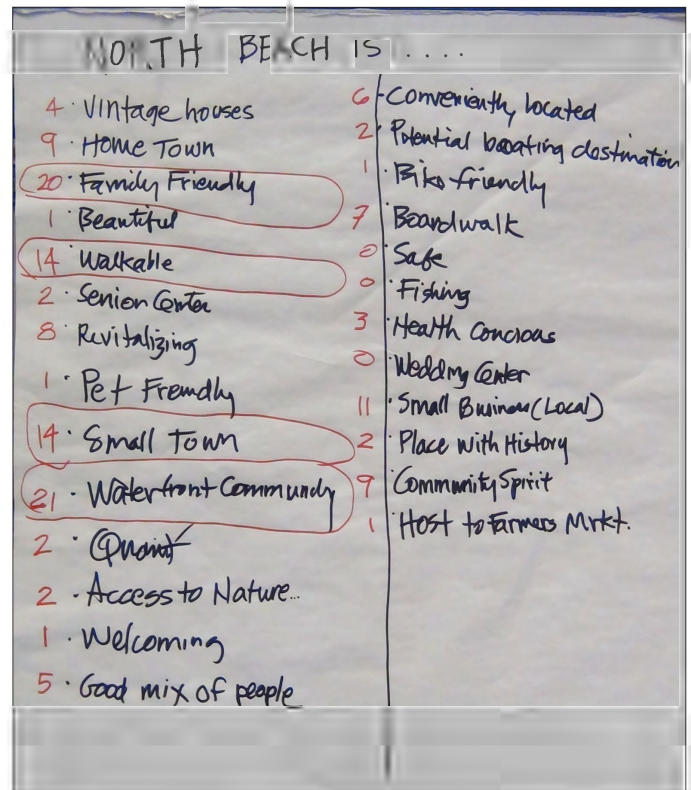 NORTH BEACH IS ....
4 · Vintage houses
9 · Home Town
20 · Family Friendly
1 · Beautiful
14 · Walkable
2 · Senior Center
8 · Revitalizing
1 · Pet Friendly
14 · Small Town
21 · Waterfront Community
2 · Quaint
2 · Access to Nature...
1 · Welcoming
5 · Good mix of people
6 · Conveniently located
2 · Potential boating destination
1 · Bike friendly
7 · Boardwalk
0 · Safe
0 · Fishing
3 · Health Concious
0 · Wedding Center
11 · Small Business (Local)
2 · Place with History
9 · Community Spirit
1 · Host to Farmers Mrkt.